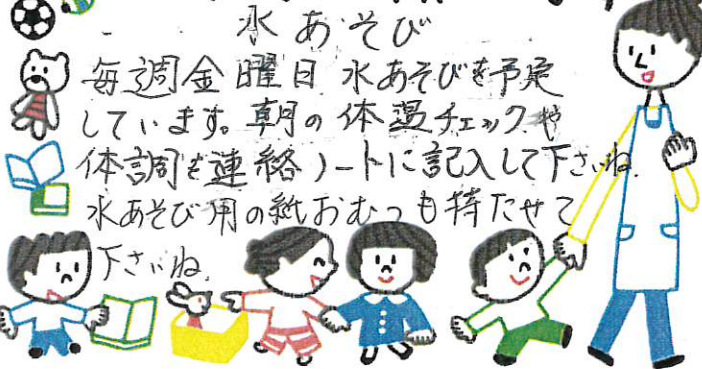 水あそび
毎週金曜日 水あそびを予定
しています。朝の体温チェックや
体調を連絡ノートに記入して下さいね.
水あそび用の紙おむつも持たせて
下さいね.